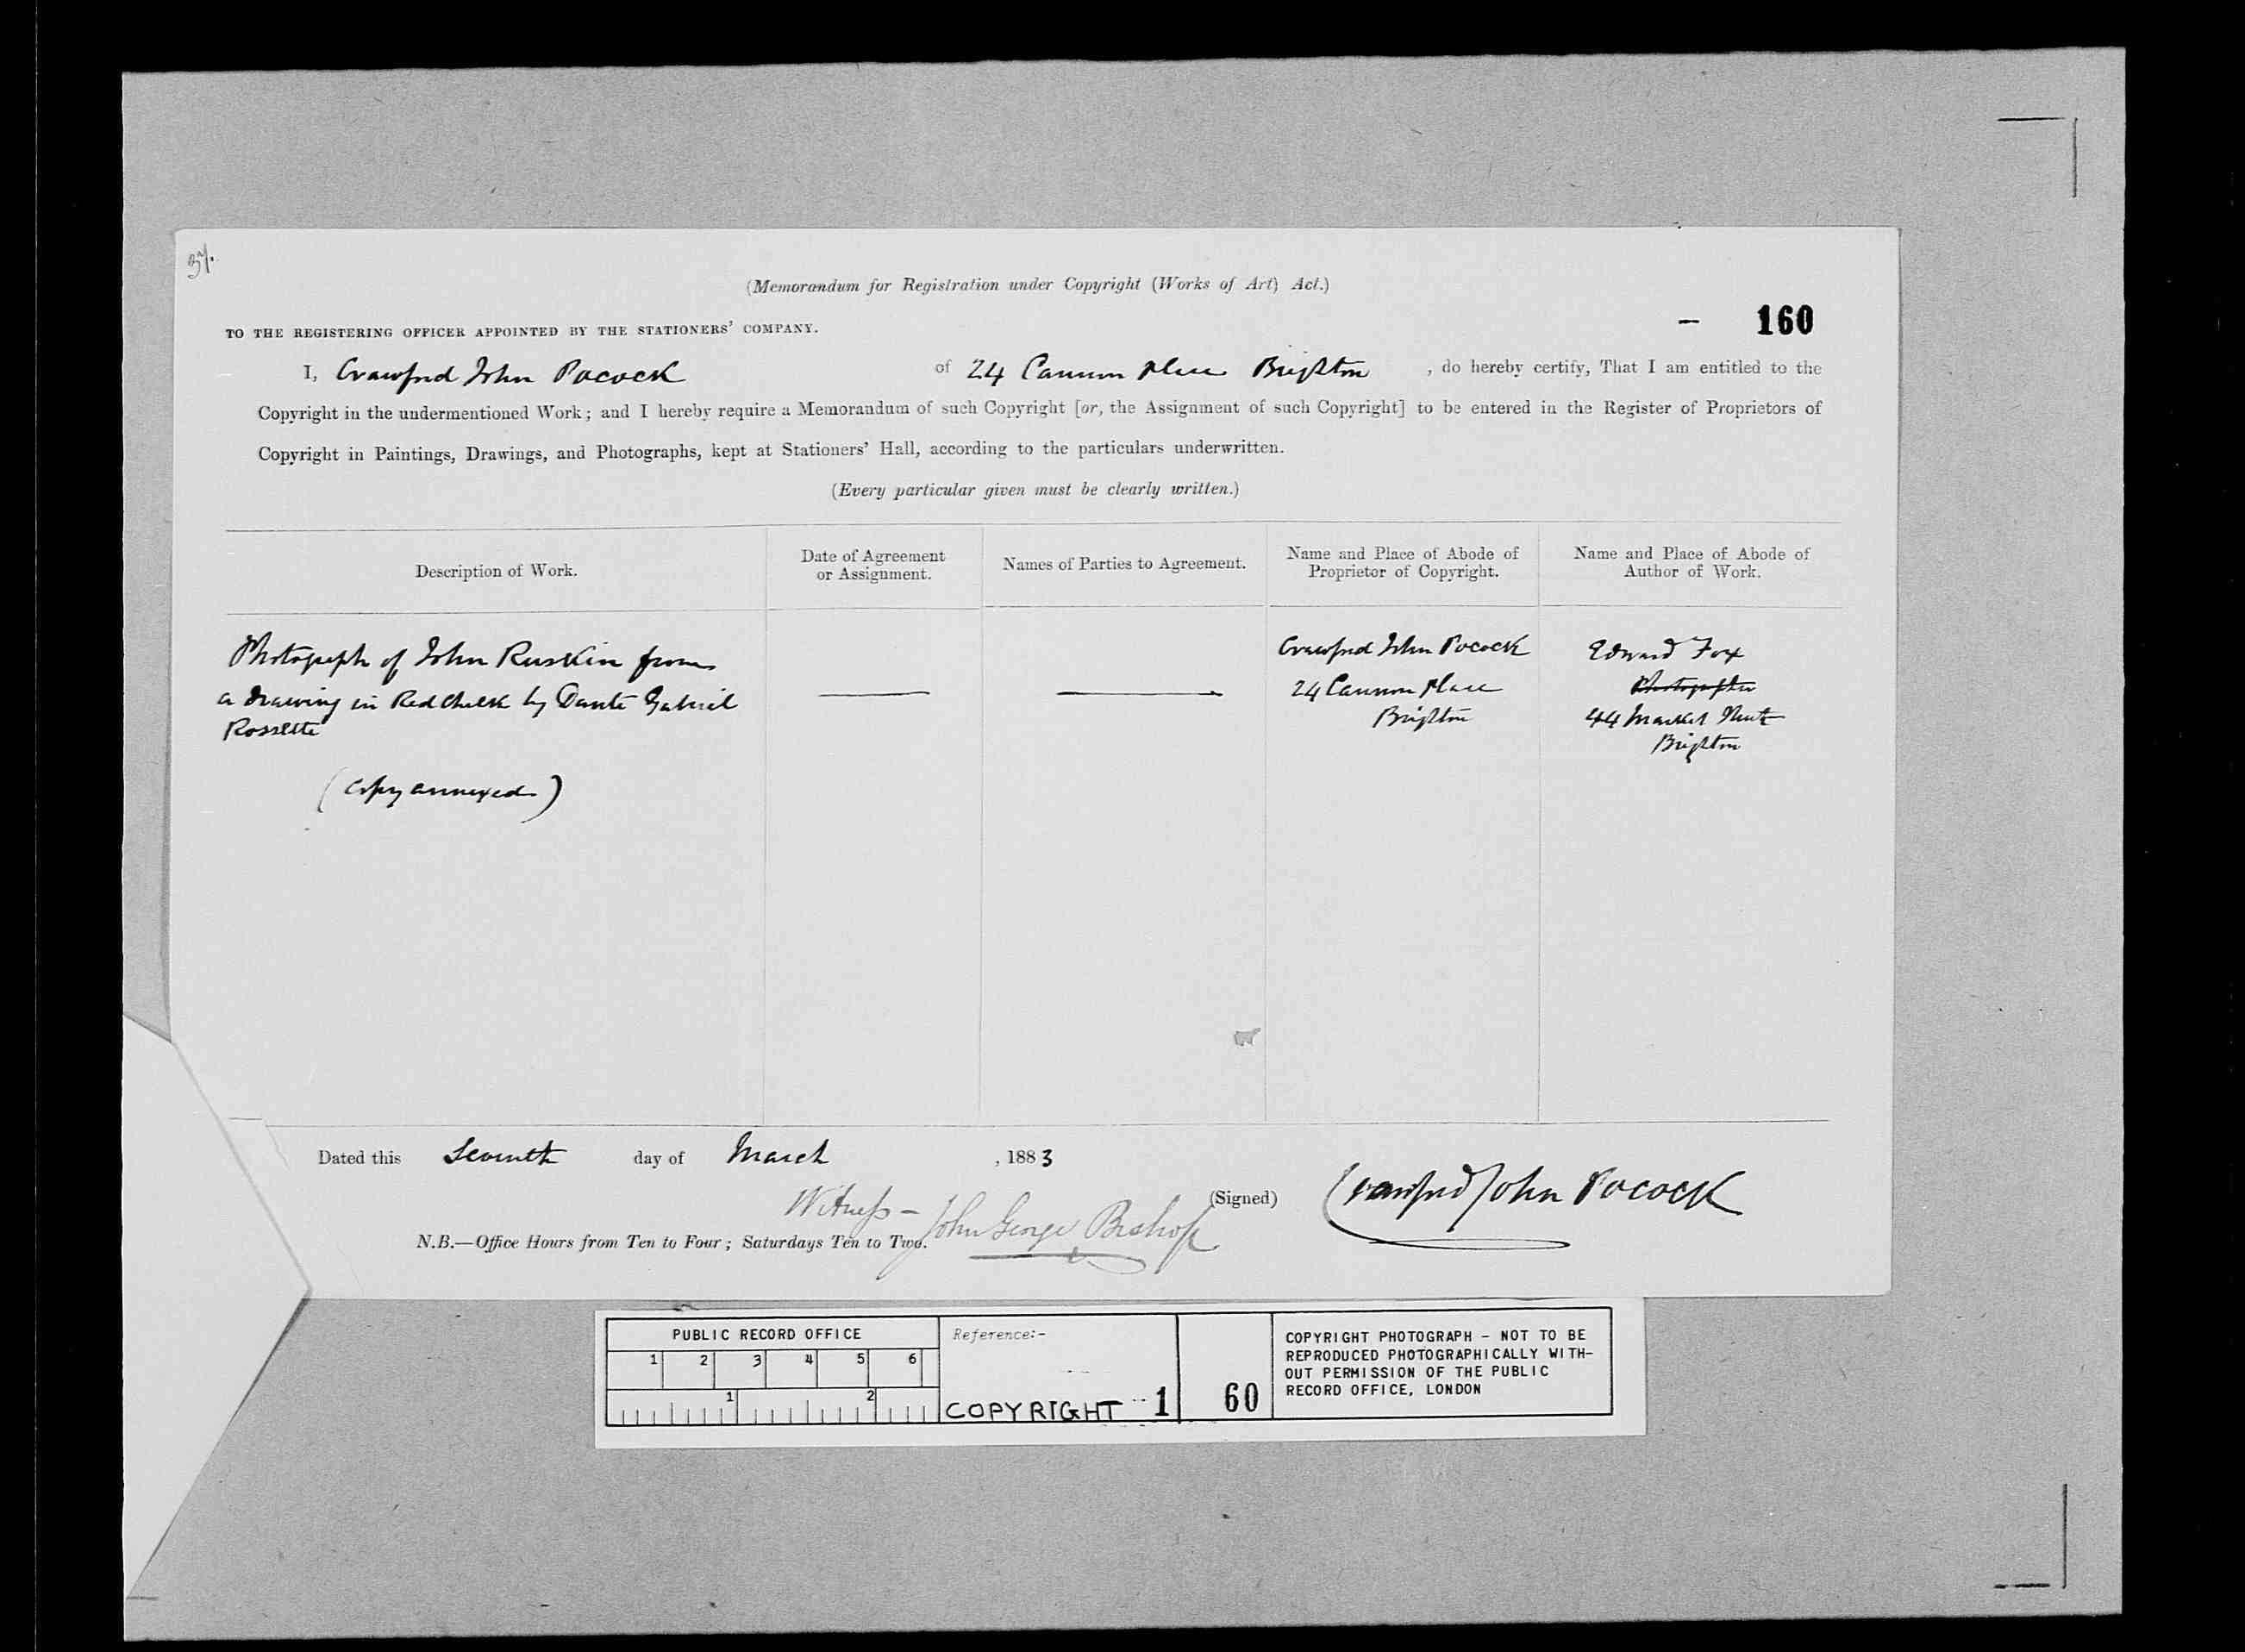 (Memorandum for Registration under Copyright (Works of Art) Act.)
TO THE REGISTERING OFFICER APPOINTED BY THE STATIONERS' COMPANY.
— 160
I, Crawford John Pocock of 24 Cannon Place Brighton, do hereby certify, That I am entitled to the
Copyright in the undermentioned Work; and I hereby require a Memorandum of such Copyright [or, the Assignment of such Copyright] to be entered in the Register of Proprietors of
Copyright in Paintings, Drawings, and Photographs, kept at Stationers' Hall, according to the particulars underwritten.
(Every particular given must be clearly written.)
Description of Work.
Date of Agreement
or Assignment.
Names of Parties to Agreement.
Name and Place of Abode of
Proprietor of Copyright.
Name and Place of Abode of
Author of Work.
Photograph of John Ruskin from
a drawing in Red Chalk by Dante Gabriel
Rossette
(Copy annexed)
Crawford John Pocock
24 Cannon Place
Brighton
Edward Fox
Photographer
44 Market Street
Brighton
Dated this Seventh day of March, 1883
Witness – John George Bishop
(Signed) Crawford John Pocock
N.B.—Office Hours from Ten to Four; Saturdays Ten to Two.
PUBLIC RECORD OFFICE
1 2 3 4 5 6
1 2
Reference:-
COPYRIGHT 1
60
COPYRIGHT PHOTOGRAPH - NOT TO BE
REPRODUCED PHOTOGRAPHICALLY WITH-
OUT PERMISSION OF THE PUBLIC
RECORD OFFICE, LONDON